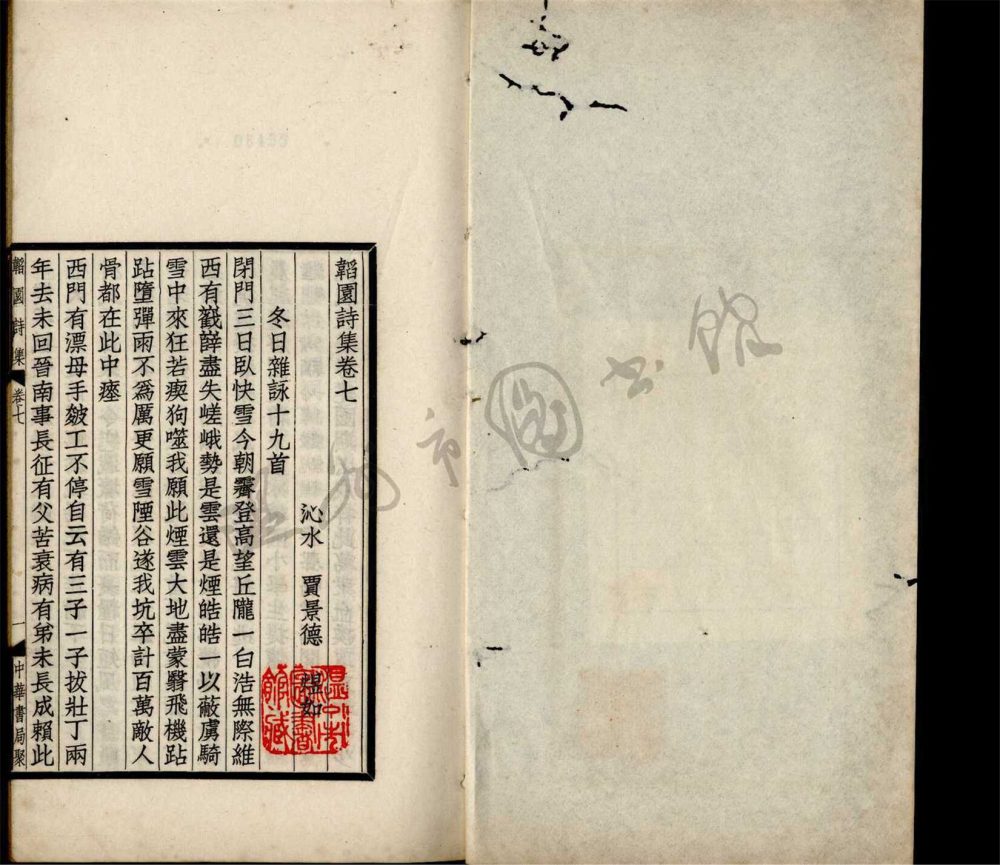 韜園詩集卷七
沁水　賈景德　煜如
冬日雜詠十九首
閉門三日臥快雪今朝霽登高望丘隴一白浩無際維
西有巀嶭盡失嵯峨勢是雲還是煙皓皓一以蔽虜騎
雪中來狂若瘈狗噬我願此煙雲大地盡蒙翳飛機跕
跕墮彈雨不為厲更願雪陻谷遂我坑卒計百萬敵人
骨都在此中瘞
西門有漂母手皴工不停自云有三子一子拔壯丁兩
年去未回晉南事長征有父苦衰病有弟未長成賴此
韜園詩集　卷七　一　中華書局聚
溫州市圖書館藏
市圖書館